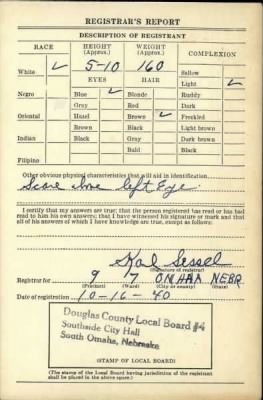 REGISTRAR'S REPORT
DESCRIPTION OF REGISTRANT
RACE HEIGHT (Approx.) WEIGHT (Approx.) COMPLEXION
White ✓ 5-10 160 Sallow
EYES HAIR Light ✓
Negro Blue ✓ Blonde Ruddy
Gray Red Dark
Oriental Hazel Brown ✓ Freckled
Brown Black Light brown
Indian Black Gray Dark brown
Bald Black
Filipino
Other obvious physical characteristics that will aid in identification
Scar above left Eye.
I certify that my answers are true; that the person registered has read or has had
read to him his own answers; that I have witnessed his signature or mark and that
all of his answers of which I have knowledge are true, except as follows:
Sessel
(Signature of registrar)
Registrar for 9 7 OMHAA NEBR
(Precinct) (Ward) (City or county) (State)
Date of registration 10-16-40
Douglas County Local Board #4
Southside City Hall
South Omaha, Nebraska
(STAMP OF LOCAL BOARD)
(The stamp of the Local Board having jurisdiction of the registrant
shall be placed in the above space.)